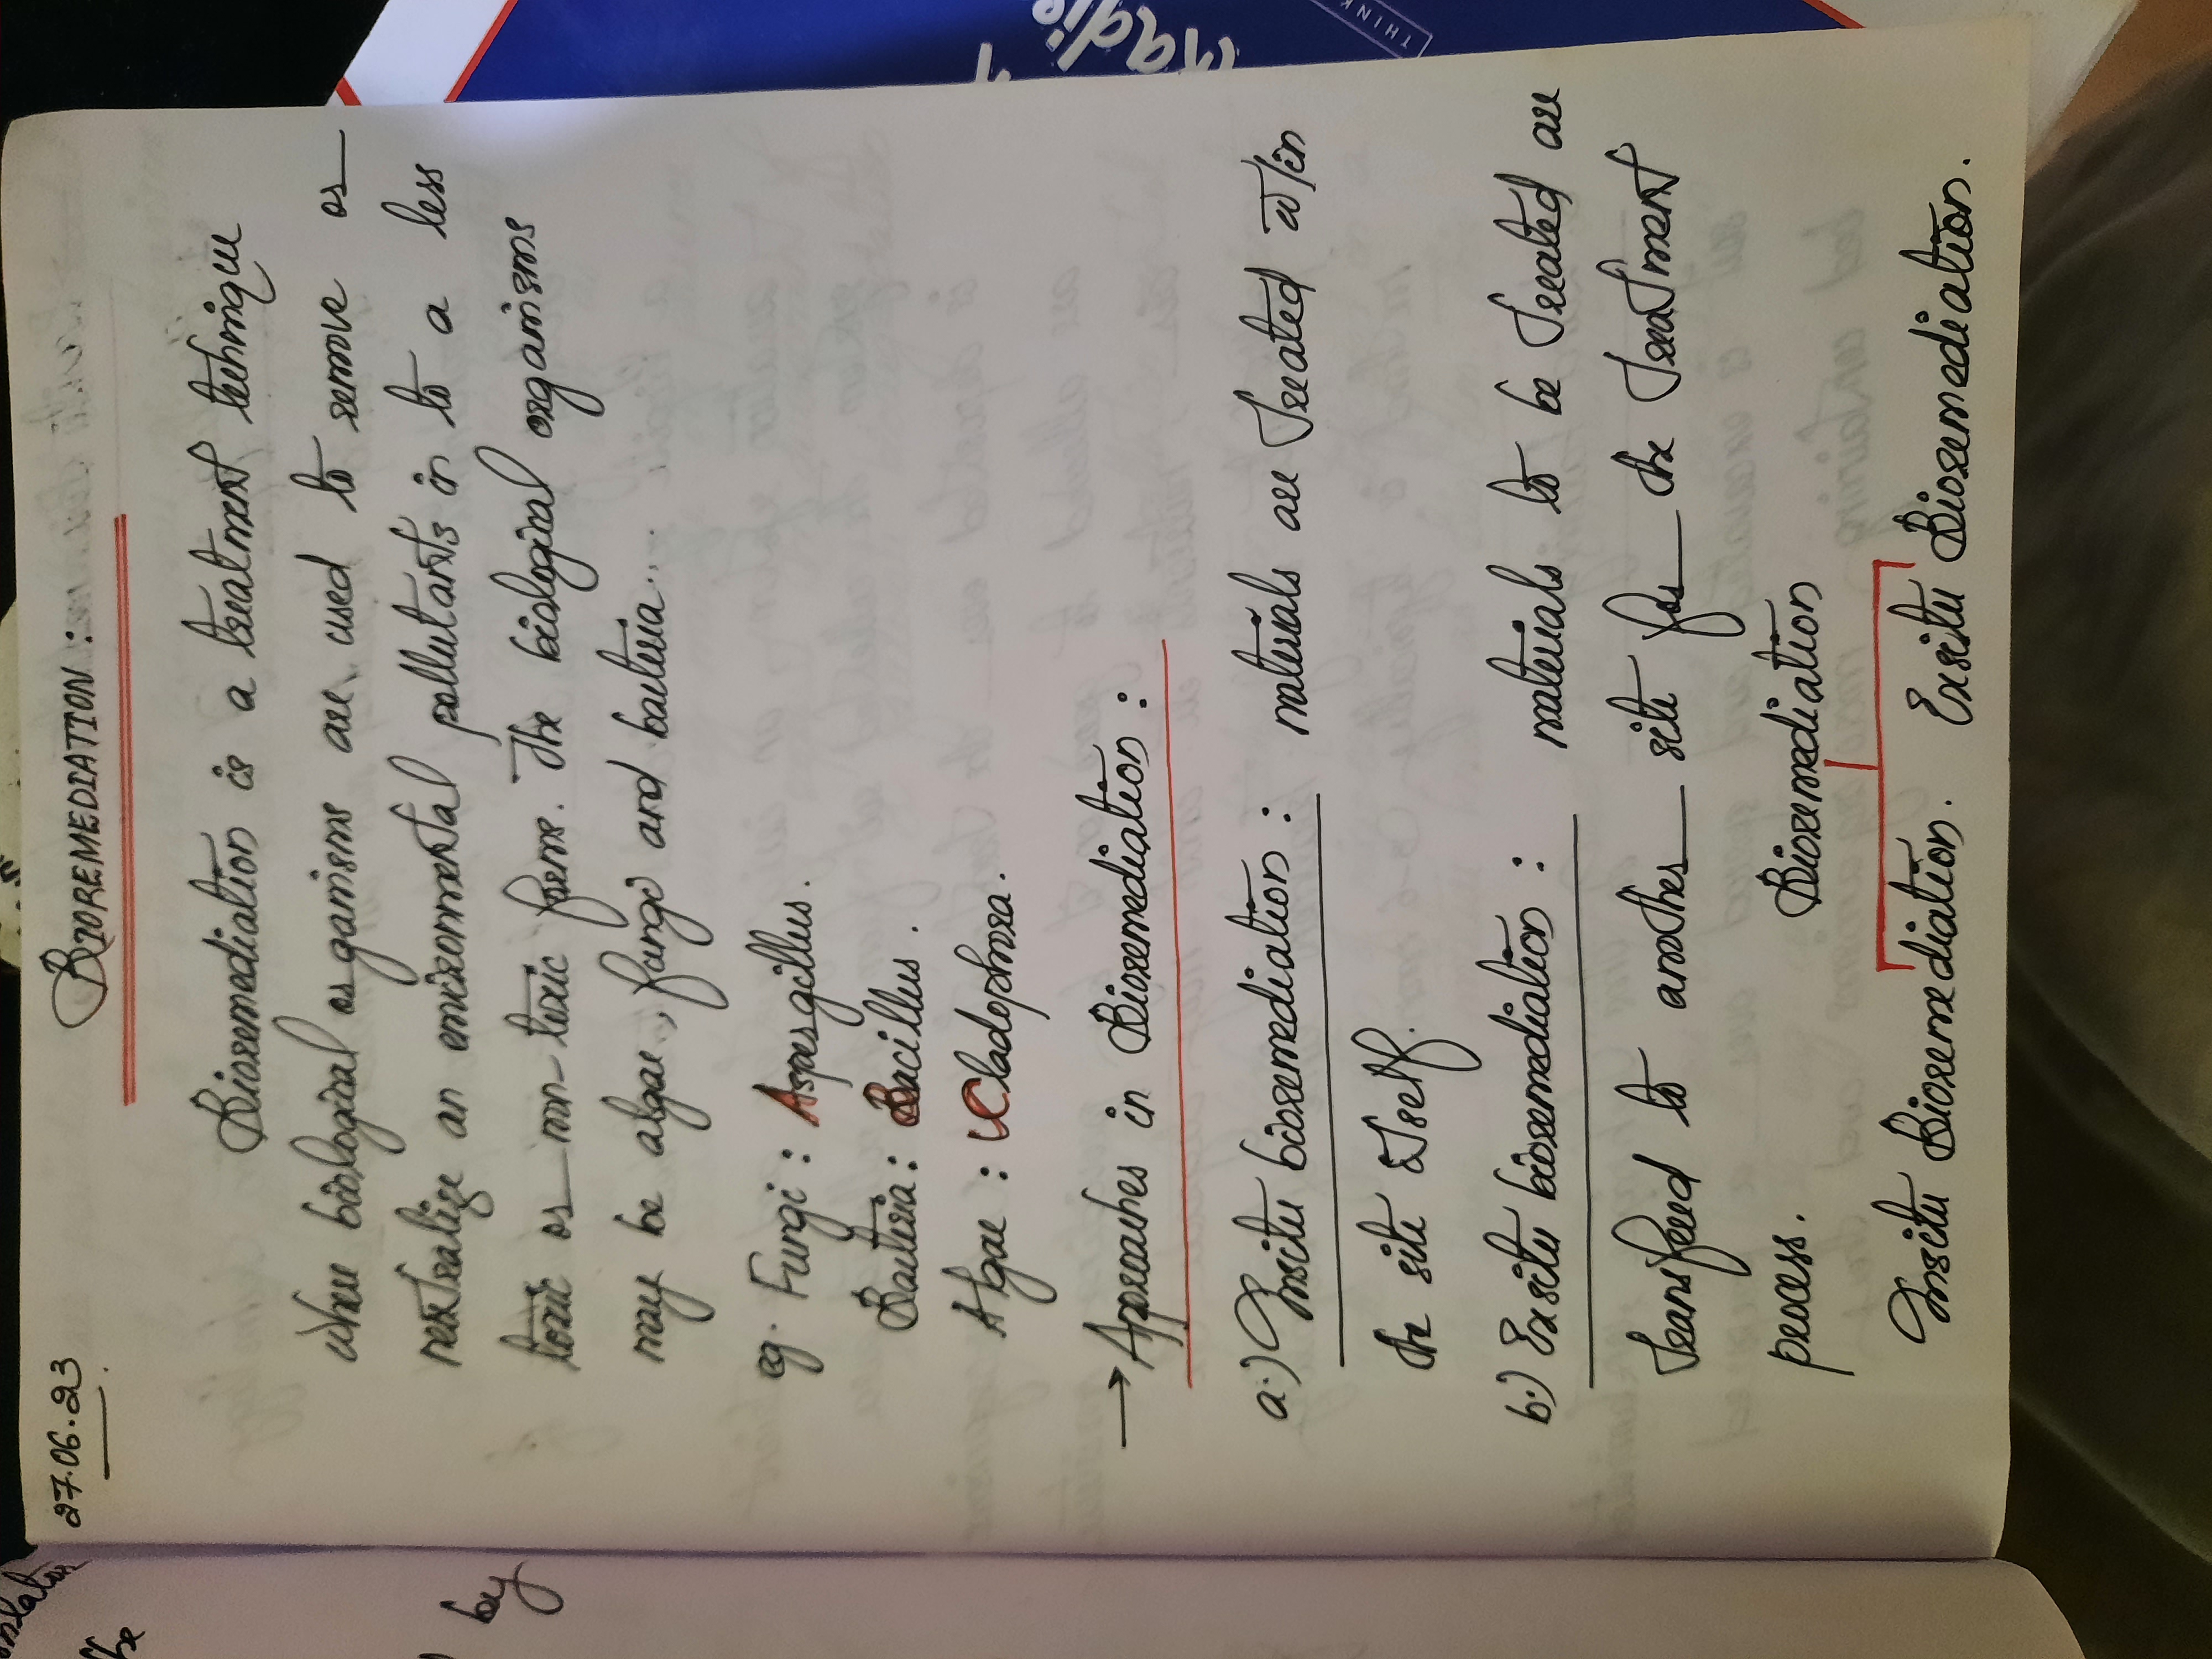 27.06.23
BIOREMEDIATION:
Bioremediation is a treatment technique
where biological organisms are used to remove or
neutralize an environmental pollutants in to a less
toxic or non-toxic form. The biological organisms
may be algae, fungi and bacteria...
eg. Fungi : Aspergillus.
Bacteria : Bacillus.
Algae : Cladophora.
→ Approaches in Bioremediation :
a.) Insitu bioremediation : materials are treated w/in
the site itself.
b.) Exsitu bioremediation : materials to be treated are
transfered to another site for the treatment
process.
Bioremediation
Insitu Bioremediation. Exsitu Bioremediation.
the
by
THINK